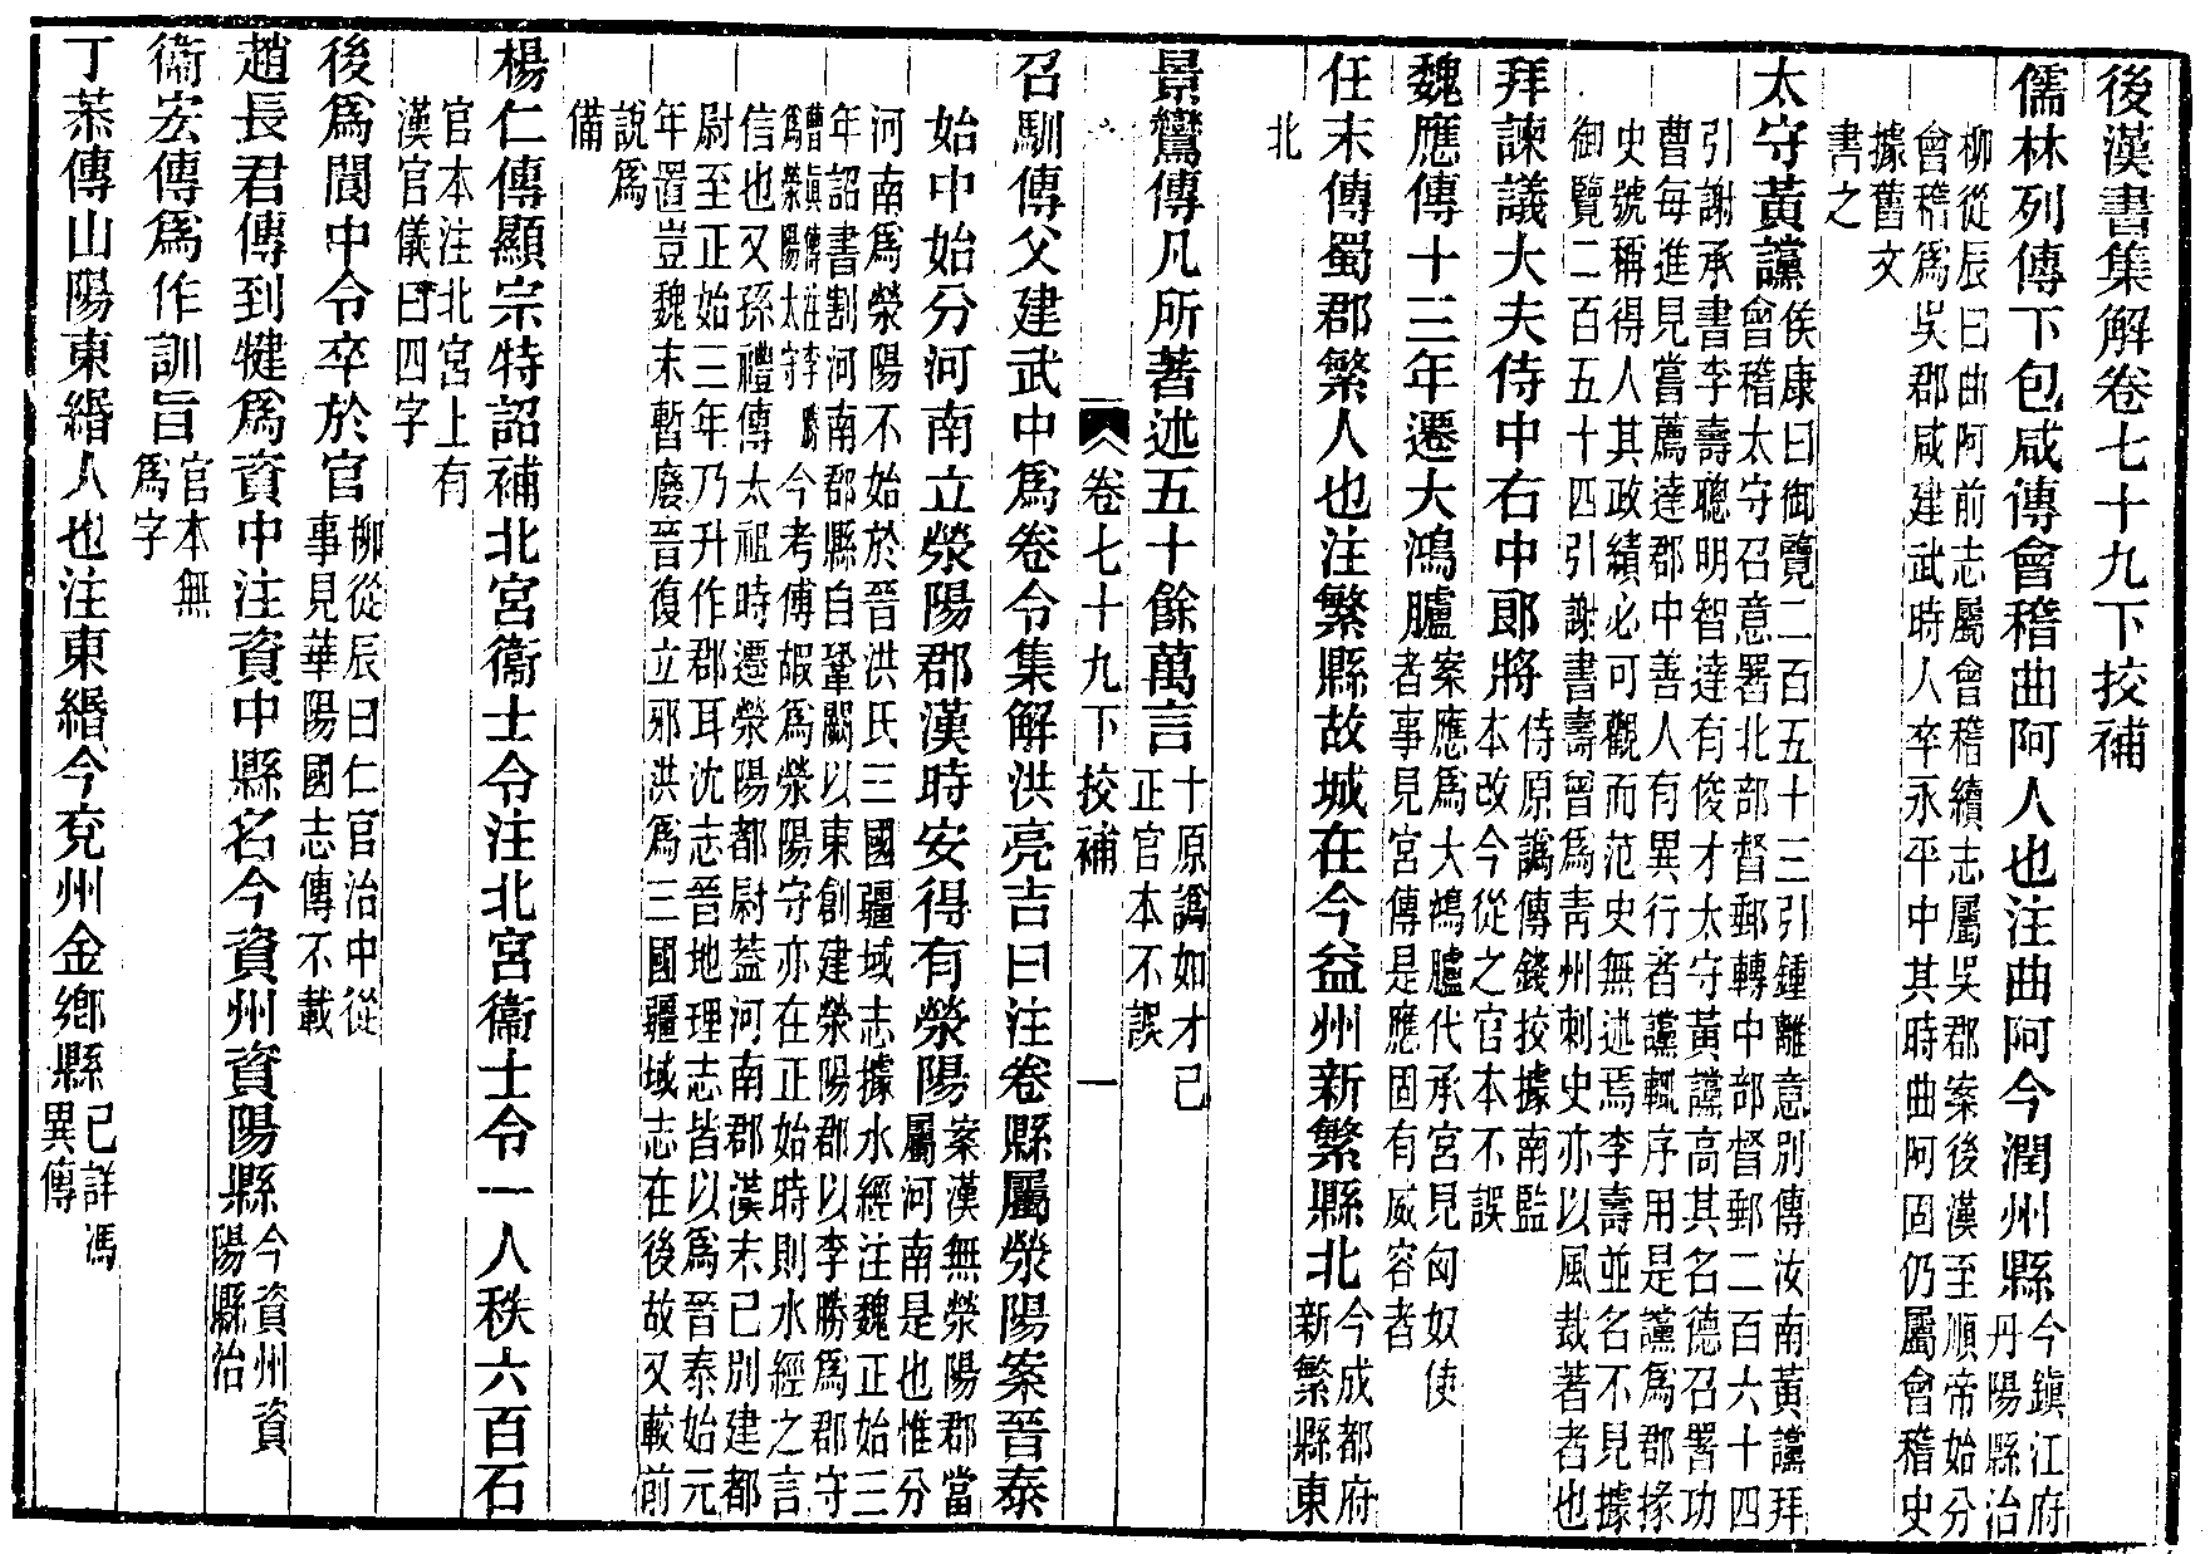 後漢書集解卷七十九下挍補
儒林列傳下包咸傳會稽曲阿人也注曲阿今潤州縣今鎮江府
丹陽縣治
柳從辰曰曲阿前志屬會稽續志屬吳郡案後漢至順帝始分
會稽爲吳郡咸建武時人卒永平中其時曲阿固仍屬會稽史
據舊文
書之
太守黃讜侯康曰御覽二百五十三引鍾離意別傳汝南黃讜拜
會稽太守召意署北部督郵轉中部督郵二百六十四
引謝承書李壽聰明智達有俊才太守黃讜高其名德召署功
曹每進見嘗薦達郡中善人有異行者讜輒序用是讜爲郡掾
史號稱得人其政績必可觀而范史無述焉李壽並名不見據
御覽二百五十四引謝書壽曾爲靑州刺史亦以風裁著者也
拜諫議大夫侍中右中郎將侍原譌傳錢挍據南監
本改今從之官本不誤
魏應傳十三年遷大鴻臚案應爲大鴻臚代承宮見匈奴使
者事見宮傳是應固有威容者
任末傳蜀郡繁人也注繁縣故城在今益州新繁縣北今成都府
新繁縣東
北
景鸞傳凡所著述五十餘萬言十原譌如才己
正官本不誤
卷七十九下挍補 一
召馴傳父建武中爲卷令集解洪亮吉曰注卷縣屬滎陽案晉泰
始中始分河南立滎陽郡漢時安得有滎陽案漢無滎陽郡當
屬河南是也惟分
河南爲滎陽不始於晉洪氏三國疆域志據水經注魏正始三
年詔書割河南郡縣自鞏闕以東創建滎陽郡以李勝爲郡守
曹眞傳注李勝
爲滎陽太守今考傅嘏爲滎陽守亦在正始時則水經之言
信也又孫禮傳太祖時遷滎陽都尉蓋河南郡漢末已別建都
尉至正始三年乃升作郡耳沈志晉地理志皆以爲晉泰始元
年置豈魏末暫廢晉復立邪洪爲三國疆域志在後故又較前
說爲
備
楊仁傳顯宗特詔補北宮衞士令注北宮衞士令一人秩六百石
官本注北宮上有
漢官儀曰四字
後爲閬中令卒於官柳從辰曰仁官治中從
事見華陽國志傳不載
趙長君傳到犍爲資中注資中縣名今資州資陽縣今資州資
陽縣治
衞宏傳爲作訓旨官本無
爲字
丁恭傳山陽東緡人也注東緡今兗州金鄉縣已詳馮
異傳